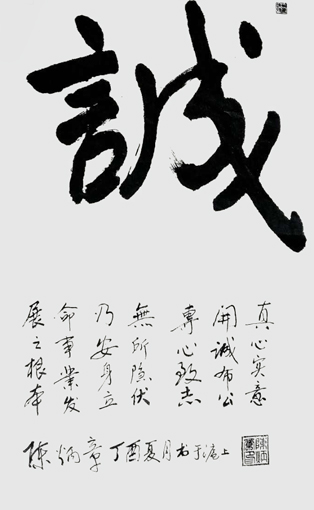 誠
真心实意
開誠布公
専心致志
無所隐伏
乃安身立
命事業发
展之根本
陈炳章丁酉夏月书于沪上